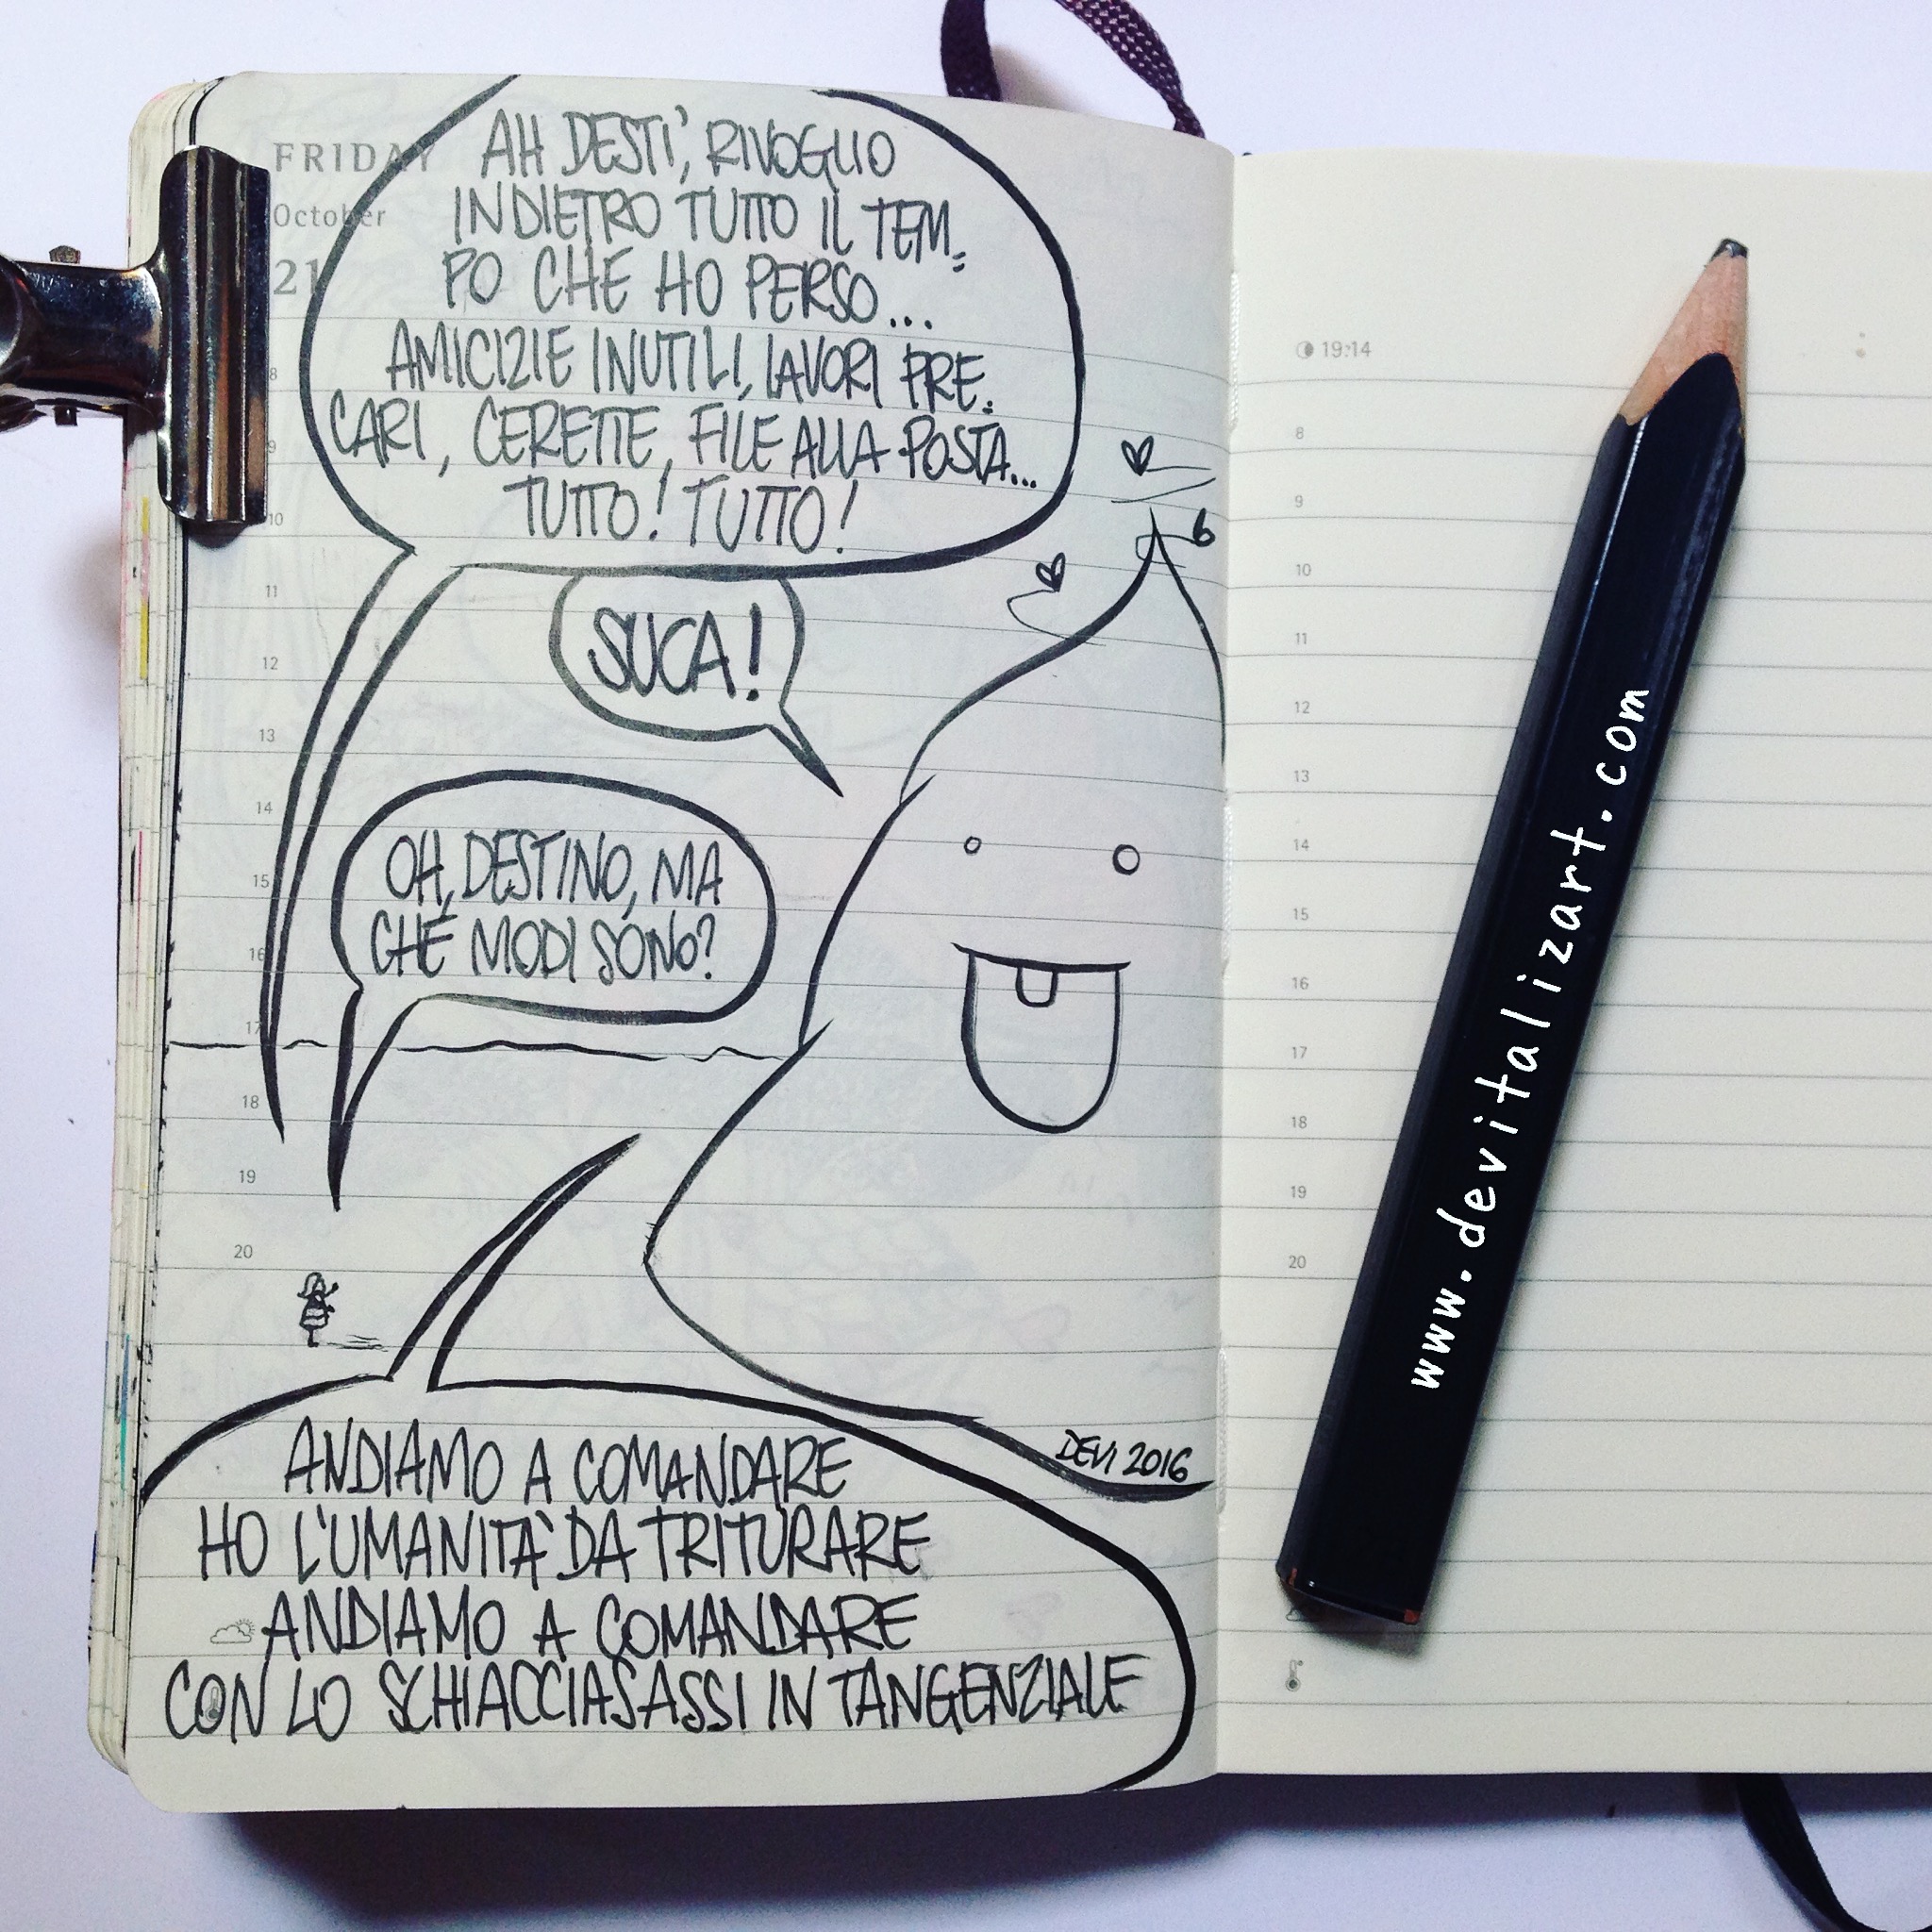 FRIDAY
October
21
AH DESTI', RIVOGLIO
INDIETRO TUTTO IL TEM=
PO CHE HO PERSO...
AMICIZIE INUTILI, LAVORI PRE=
CARI, CERETTE, FILE ALLA POSTA...
TUTTO! TUTTO!
SUCA!
OH, DESTINO, MA
CHE MODI SONO?
ANDIAMO A COMANDARE
HO L'UMANITÀ DA TRITURARE
ANDIAMO A COMANDARE
CON LO SCHIACCIASASSI IN TANGENZIALE
DEVI 2016
8
9
10
11
12
13
14
15
16
17
18
19
20
19:14
8
9
10
11
12
13
14
15
16
17
18
19
20
www.devitalizart.com